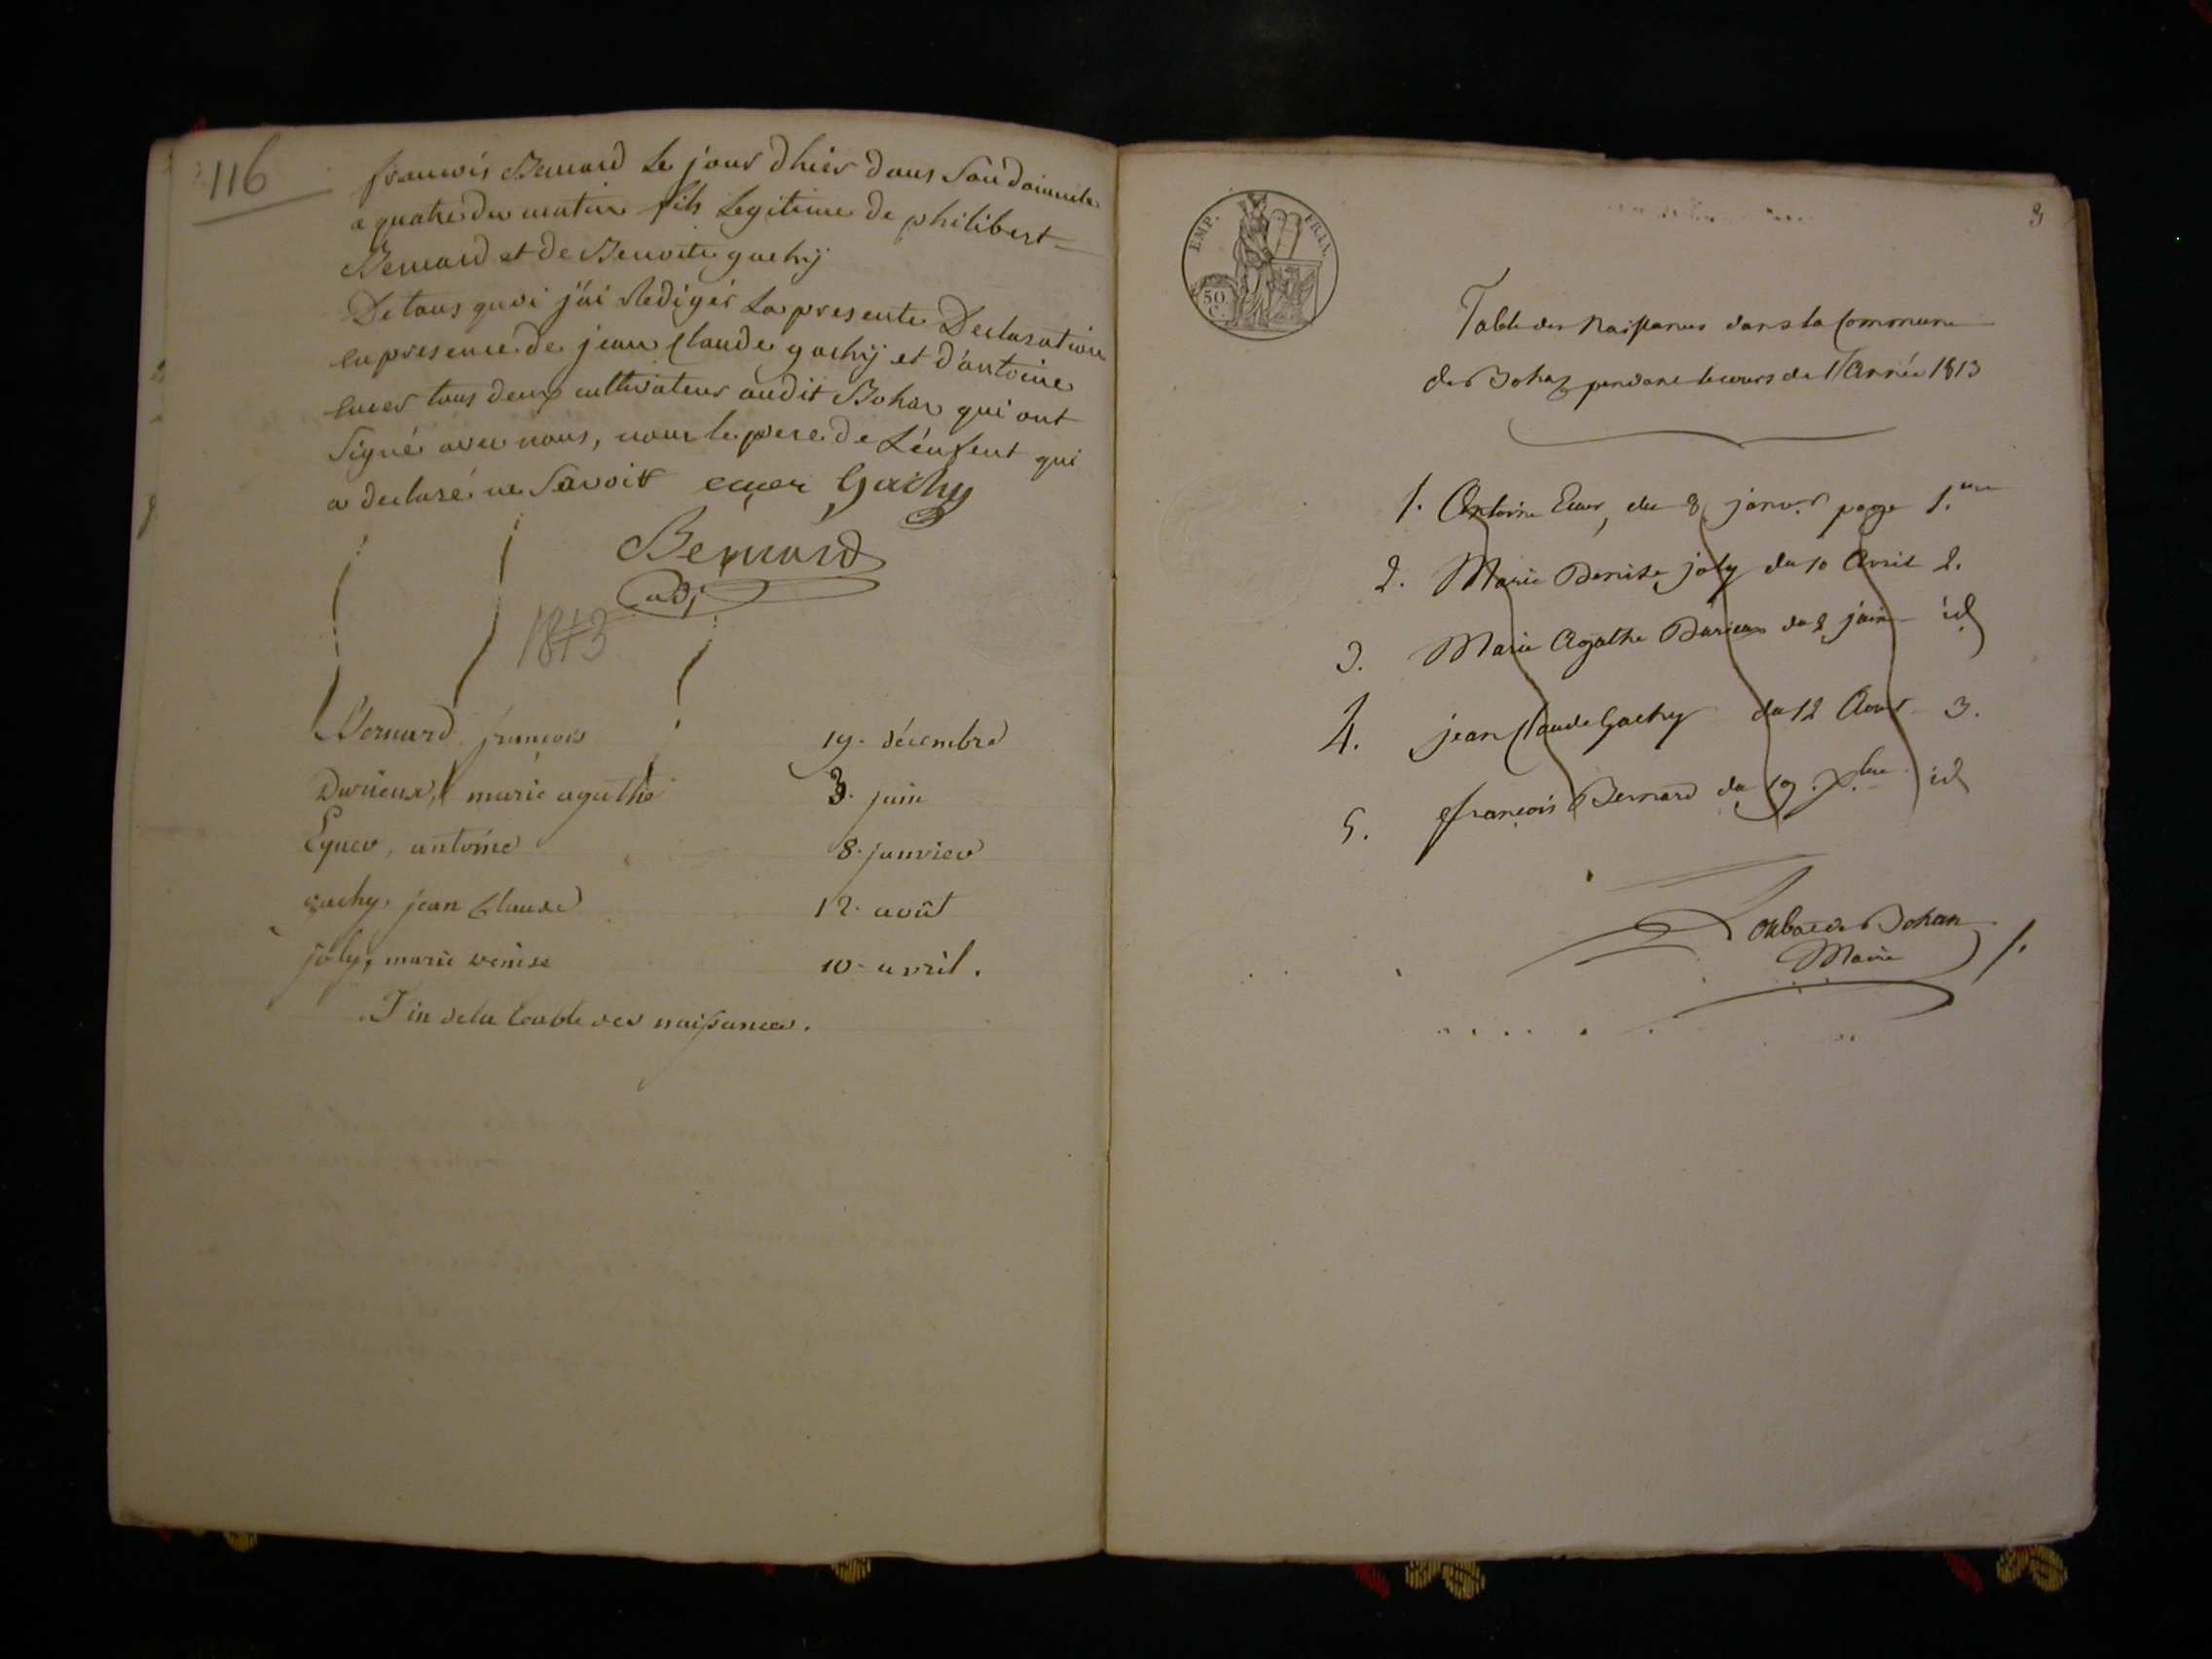 116
francois Bernard le jour dhier dans son domicile
a quatre du matin fils Legitime de philibert
Bernard et de Benoite gachy
De tous quoi j'ai Redigér la presente Declaration
en presence de jean Claude gachij et d'antoine
euer tous deux cultivateur audit Bohas qui ont
Signé avec nous, non le pere de L'enfent qui
a declaré ne Savoir ecuer Gachy
Bernard
adj
1813
Bernard françois 19. décembre
Durieux, marie agathe 3. juin
Eyuer, antoine 8. janvier
gachy, jean Claude 12. août
joly, marie denise 10. avril.
Fin de la table des naissances.
3
EMP. FRAN.
50 C.
Table des Naissances dans la Commune
de Bohas pendant le cours de l'Année 1813
1. Antoine Euer, du 8 janv.r page 1.ere
2. Marie Denise joly du 10 Avril 2.
3. Marie Agathe Durieux du 2 juin id
4. jean Claude Gachy du 12 Aout 3.
5. françois Bernard du 19 Xbre id
de Bohan
Maire